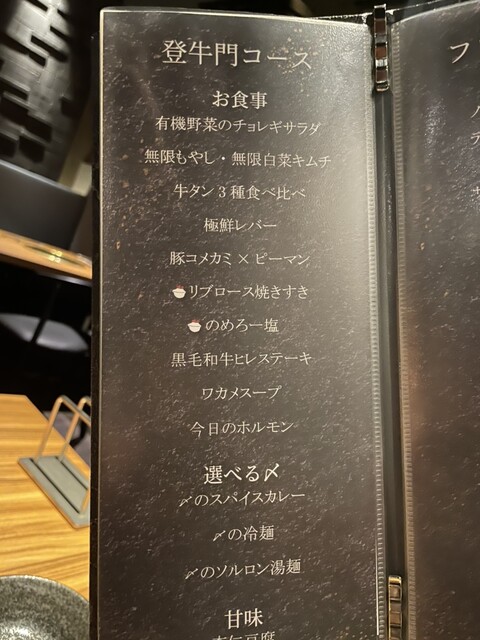 登牛門コース
お食事
有機野菜のチョレギサラダ
無限もやし・無限白菜キムチ
牛タン3種食べ比べ
極鮮レバー
豚コメカミ×ピーマン
リブロース焼きすき
のめろー塩
黒毛和牛ヒレステーキ
ワカメスープ
今日のホルモン
選べる〆
〆のスパイスカレー
〆の冷麺
〆のソルロン湯麺
甘味
フ